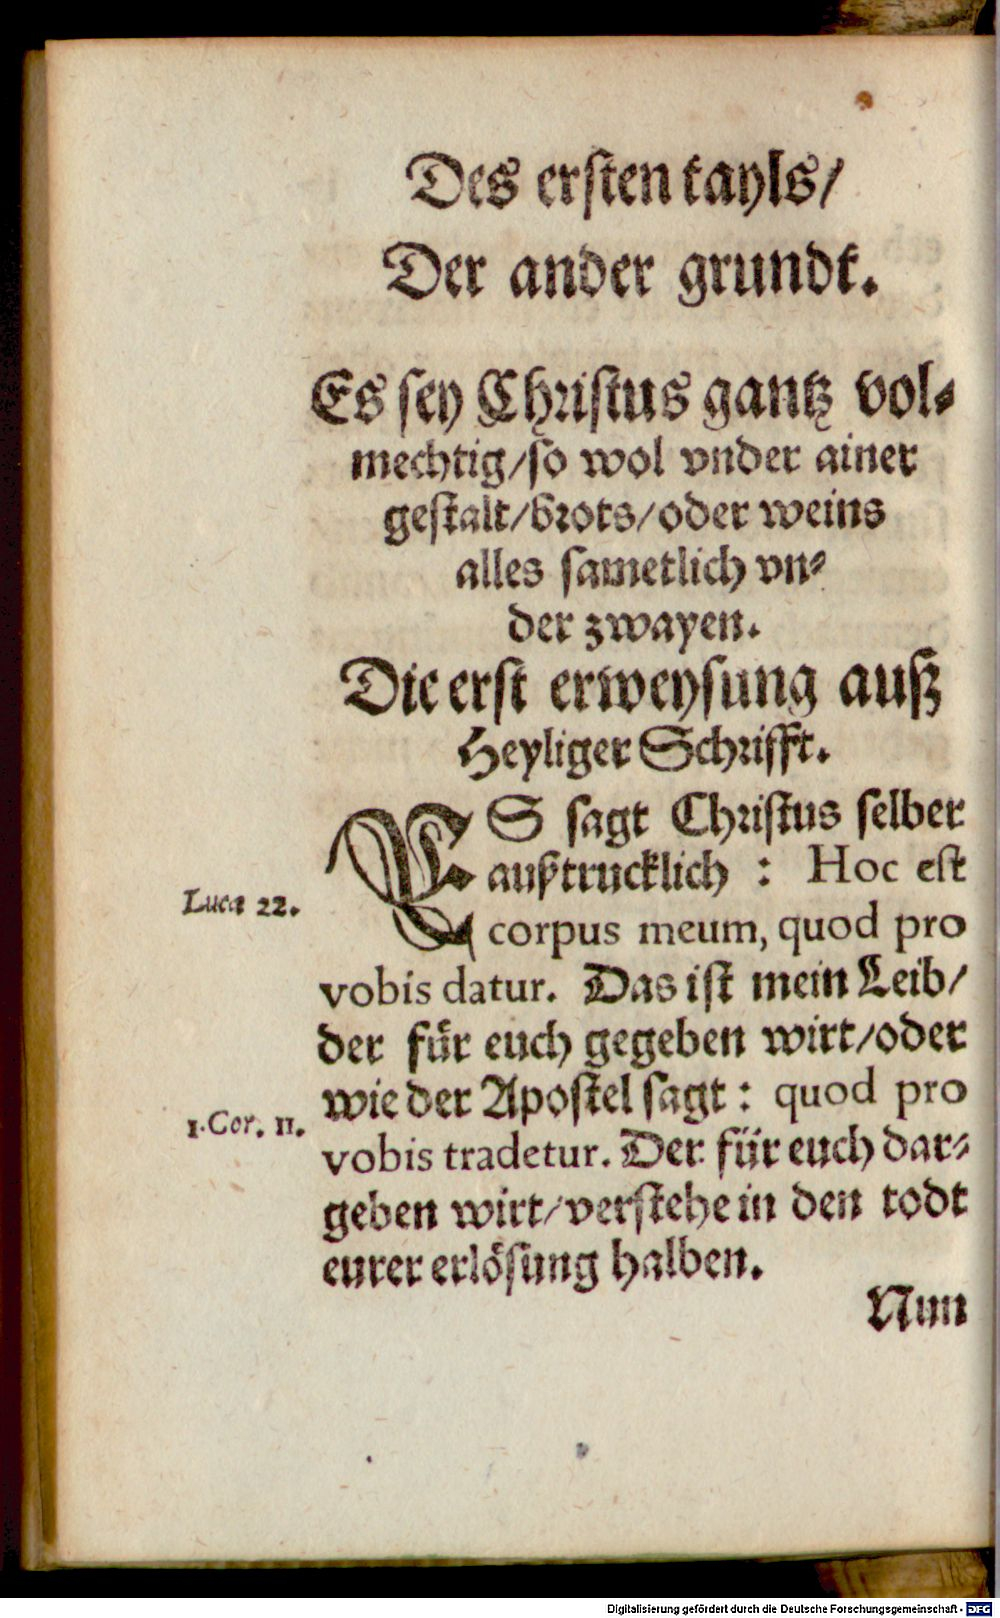 Des ersten tayls/
Der ander grundt.
Es sey Christus gantz vol-
mechtig/so wol vnder ainer
gestalt/brots/oder weins
alles sametlich vn-
der zwayen.
Die erst erweysung auß
Heyliger Schrifft.
ES sagt Christus selber
außtrucklich : Hoc est
Lucæ 22.
corpus meum, quod pro
vobis datur. Das ist mein Leib/
der für euch gegeben wirt/oder
wie der Apostel sagt : quod pro
1.Cor. 11.
vobis tradetur. Der für euch dar-
geben wirt/verstehe in den todt
eurer erlösung halben.
Nun
Digitalisierung gefördert durch die Deutsche Forschungsgemeinschaft - DFG